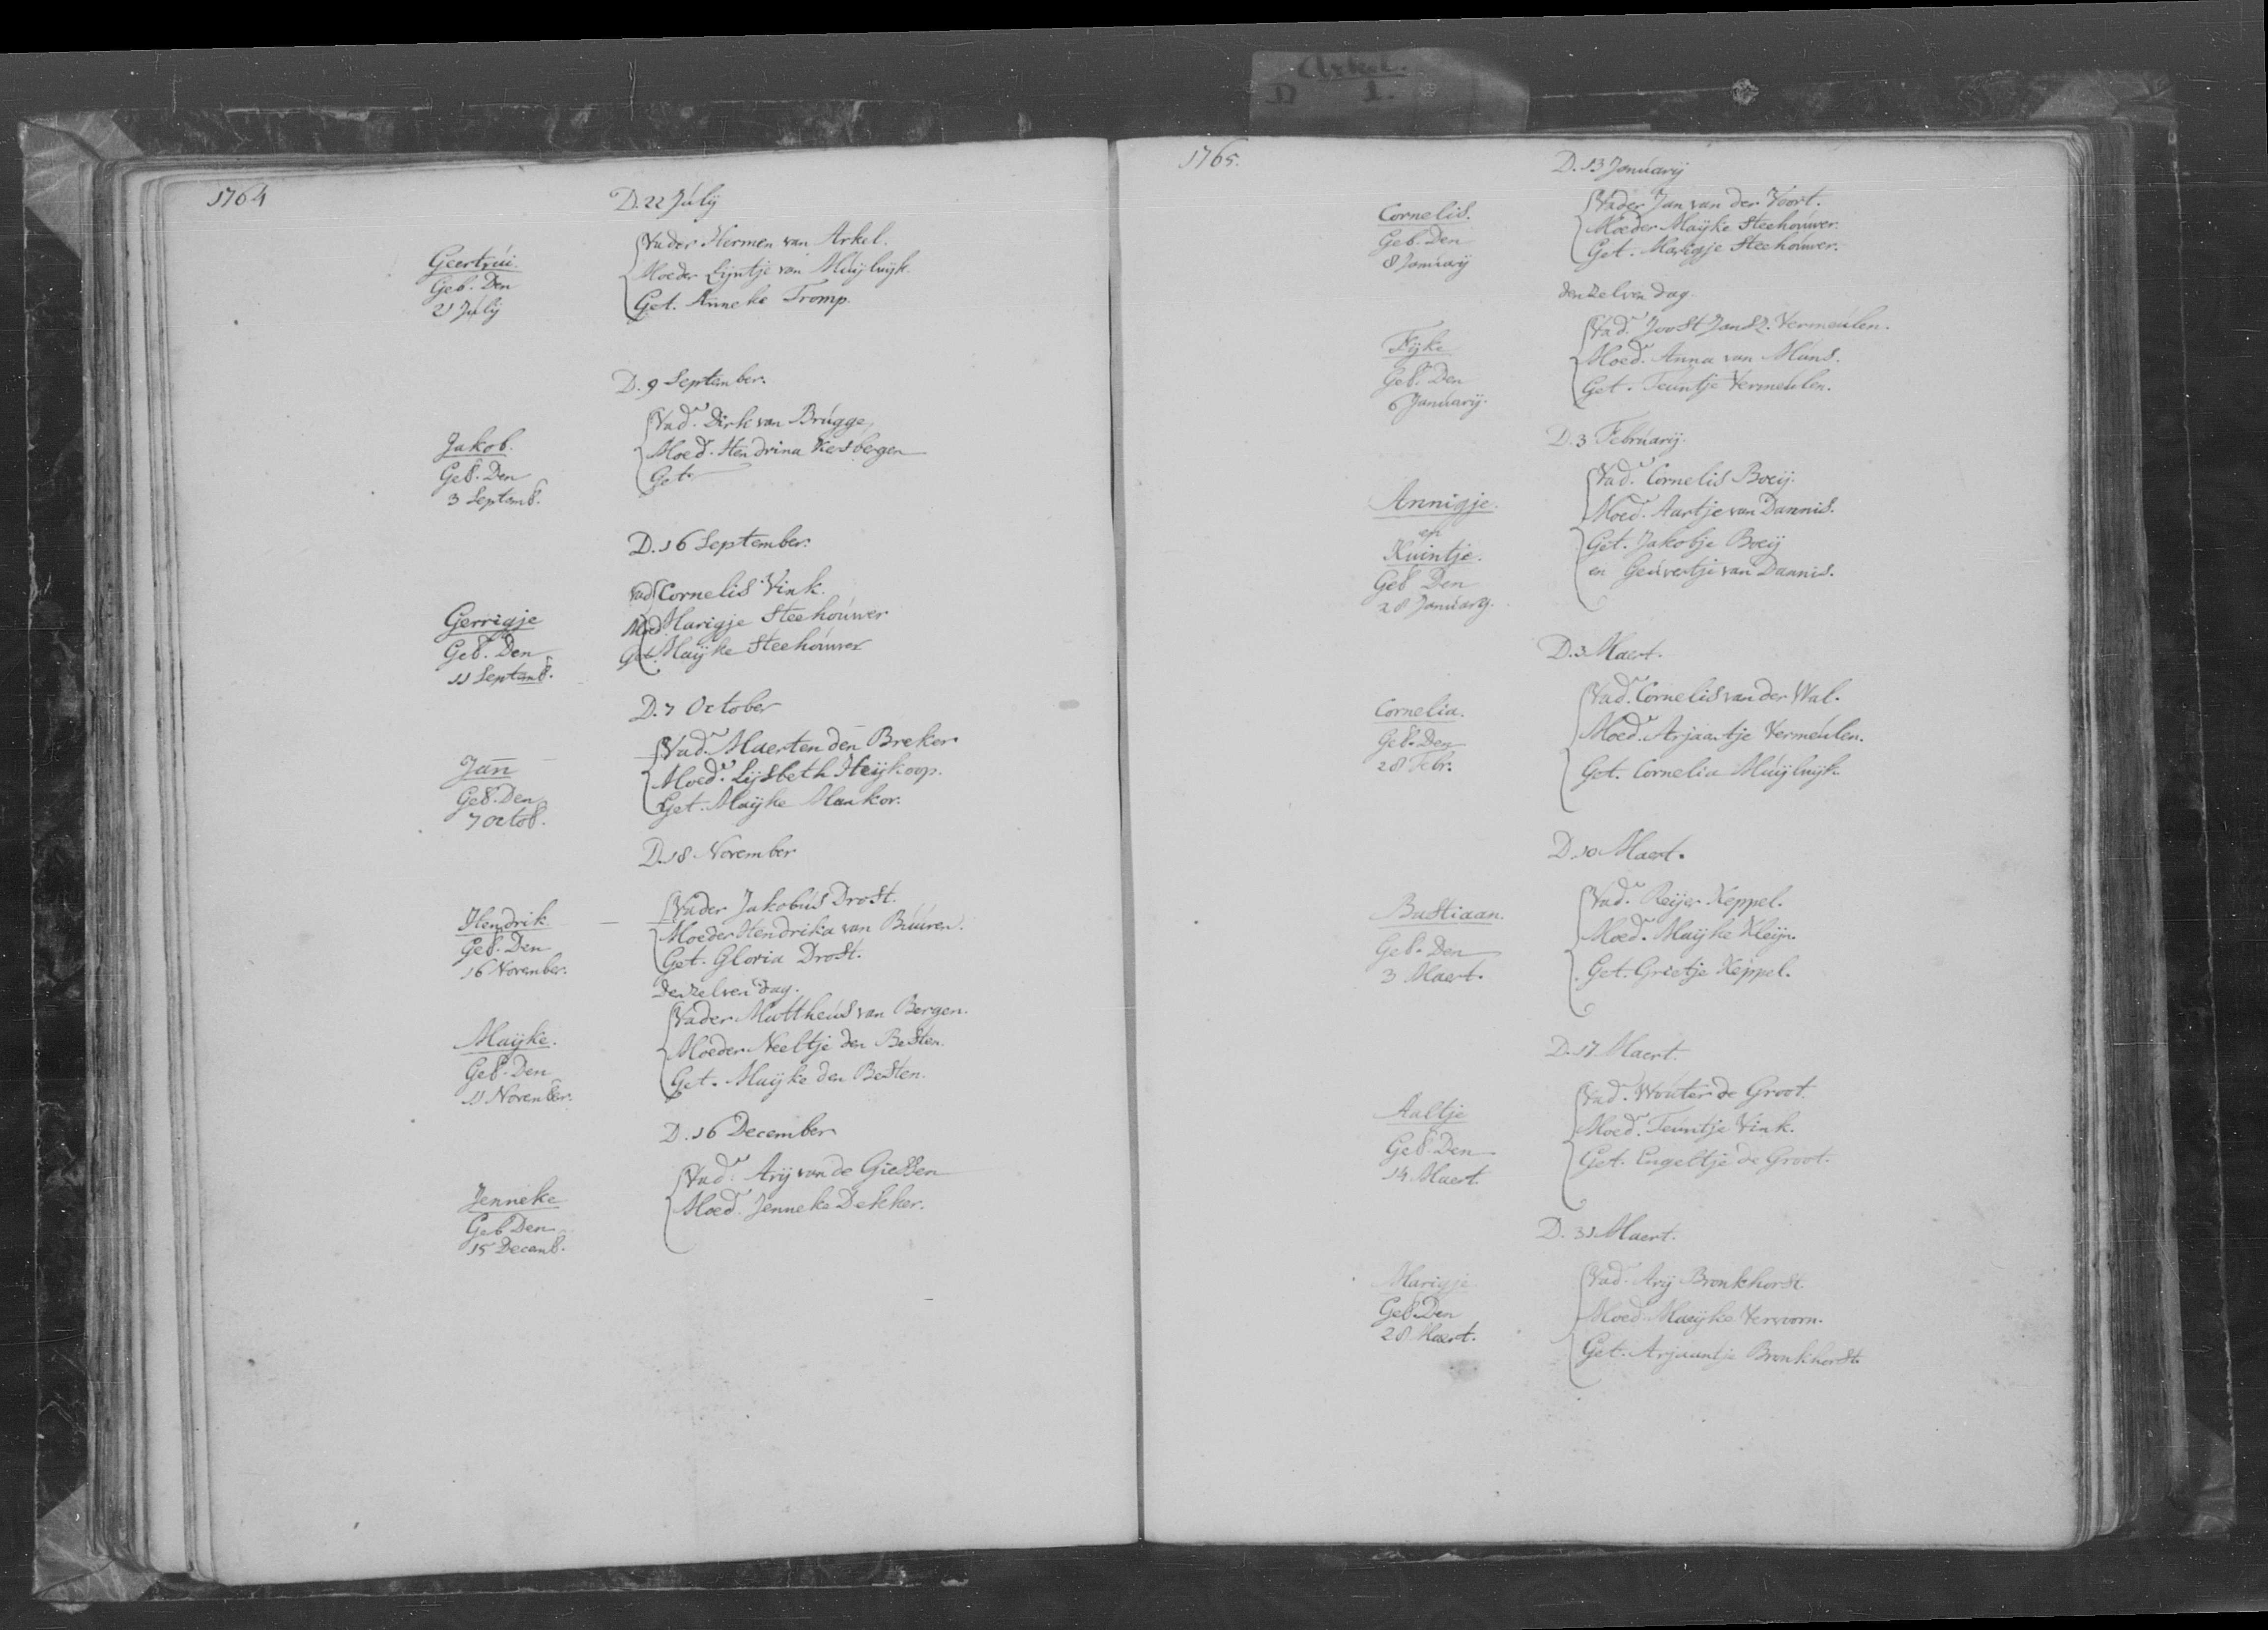 Arkel.
D 1.
1764
D. 22 Júlij
Geertrúi.
Geb. Den
21 Júlij
Vader Hermen van Arkel.
Moeder Lijntje van Múijlwijk.
Get. Anneke Tromp.
D. 9 September.
Jakob.
Geb. Den
3 Septemb.
Vad.r Dirk van Brúgge,
Moed. Hendrina Kesbergen
Get.
D. 16 September.
Gerrigje
Geb. Den
11 Septemb.
Vad Cornelis Vink.
Moed. Marigje Steehoúwer
Get. Maijke Steehoúwer
D. 7 October
Jan
Geb. Den
7 Octob.
Vad.r Maerten den Breker
Moed.r Lijsbeth Heijkoop.
Get. Maijke Mankor.
D. 18 November
Hendrik
Geb. Den
16 November.
Vader Jakobús Drost.
Moeder Hendrika van Búúren.
Get. Gloria Drost.
Denzelven dag.
Maijke.
Geb. Den
11 November.
Vader Mattheús van Bergen.
Moeder Neeltje den Besten.
Get. Maijke den Besten.
D. 16 December
Jenneke
Geb Den
15 Decemb.
Vad.r Arij van de Giessen
Moed.r Jenneke Dekker.
1765.
D. 13 Janúarij
Cornelis.
Geb. Den
8 Janúarij
Vader Jan van der Voort.
Moeder Maijke Steehoúwer.
Get. Marigje Steehoúwer.
denzelven dag.
Fijke
Geb. Den
6 Janúarij.
Vad.r Joost Jansz. Vermeúlen.
Moed.r Anna van Mans.
Get. Teúntje Vermeúlen.
D. 3 Febrúarij.
Annigje.
en
Kúintje.
Geb Den
28 Janúarij.
Vad.r Cornelis Boeij.
Moed.r Aartje van Dannis.
Get. Jakobje Boeij
en Geúvertje van Dannis.
D. 3 Maert.
Cornelia.
Geb. Den
28 Febr.
Vad.r Cornelis van der Wal.
Moed.r Arjaantje Vermeúlen.
Get. Cornelia Múijlwijk.
D. 10 Maert.
Bastiaan.
Geb. Den
3 Maert.
Vad.r Reijer Keppel.
Moed.r Maijke Kleijn.
Get. Grietje Keppel.
D. 17 Maert.
Aaltje
Geb. Den
14 Maert.
Vad.r Woúter de Groot.
Moed.r Teúntje Vink.
Get. Engeltje de Groot.
D. 31 Maert.
Marigje
Geb. Den
28 Maert.
Vad. Arij Bronkhorst.
Moed. Maijke Vervoorn.
Get. Arjaantje Bronkhorst.